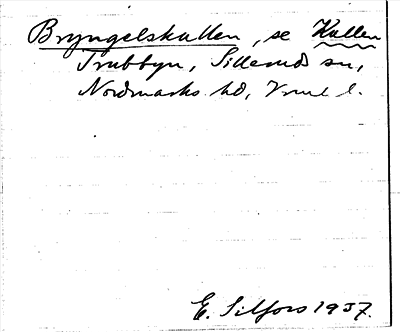 Bryngelskullen, se Kullen
Trubbyn, Silleruds sn,
Nordmarks hd, Vrml l.
E. Silfors 1937.